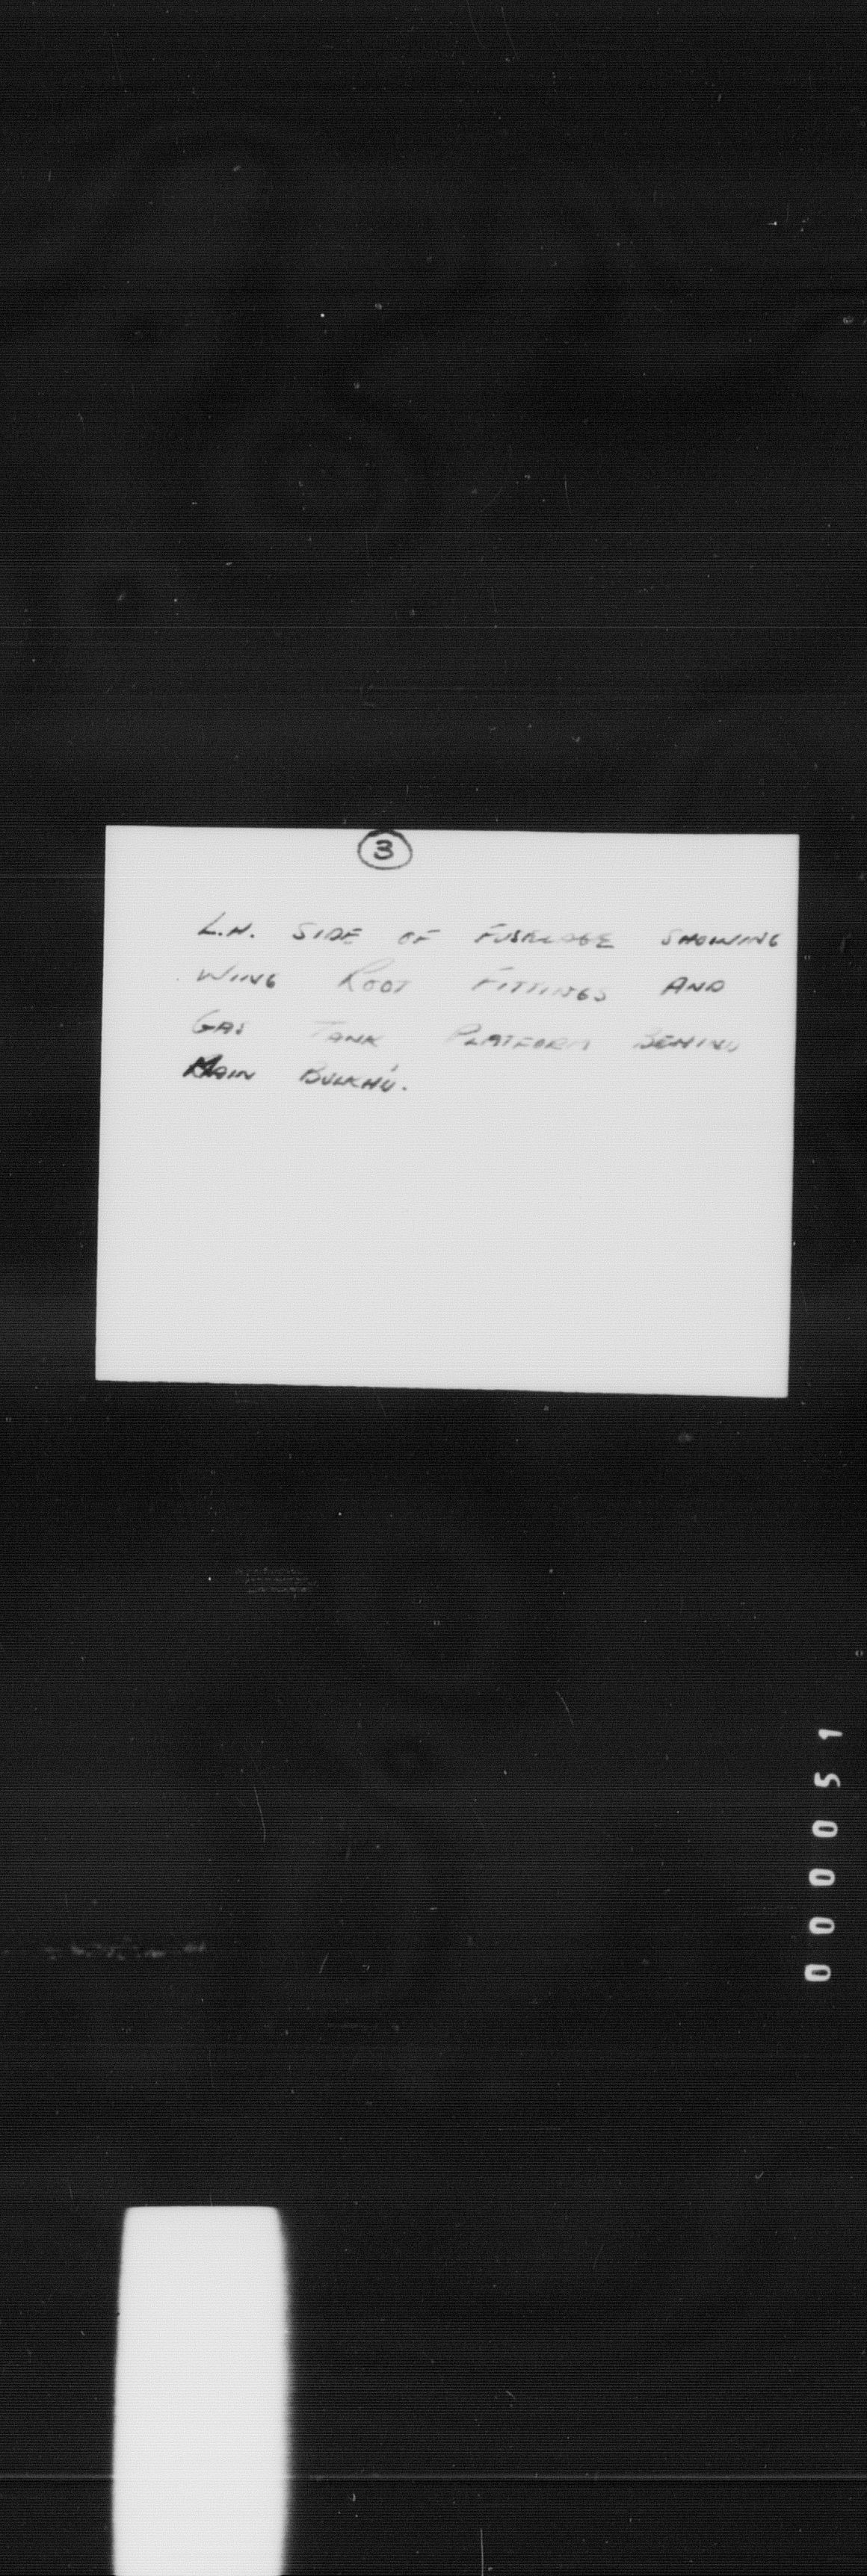 3
L.H. SIDE OF FUSELAGE SHOWING
WING ROOT FITTINGS AND
GAS TANK PLATFORM BEHIND
MAIN BULKH'D.
000051